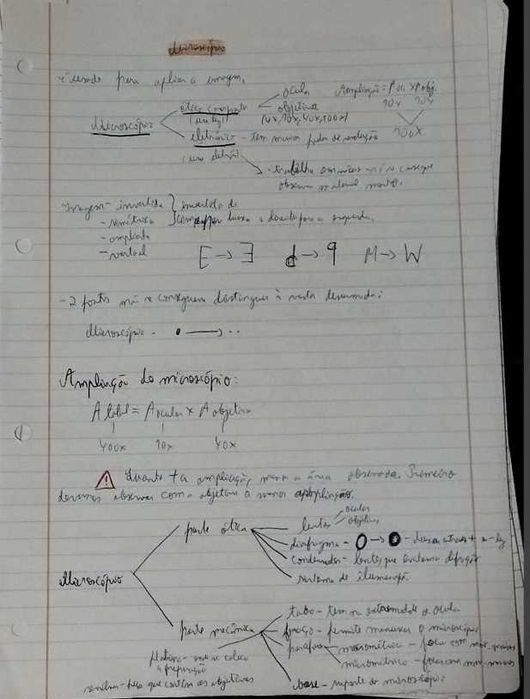 Microscópio
é usado para ampliar a imagem.
Microscópio
ótico composto
(usa luz)
ocular
objetivas
(4x, 10x, 40x, 100x)
Ampliação = P oc. x P obj.
10x 10x
100x
eletrónico - tem maior poder de resolução
(usa eletrões)
trabalha não se consegue
observar material morto.
Imagem - invertida
- simétrica
- ampliada
- virtual
invertida de
cima para baixo e direita para a esquerda.
E → Ǝ d → q M → W
- 2 pontos não se conseguem distinguir à vista desarmada:
Microscópio - • → ..
Ampliação do microscópio:
A total = A ocular x A objetiva
400x 10x 40x
Quanto + a ampliação, menor a área observada. Primeiro
devemos observar com a objetiva de menor ampliação.
Microscópio
parte ótica
lentes
ocular
objetiva
diafragma - O → O - + ou - luz
condensador - lentes que
sistema de iluminação.
parte mecânica
tubo - tem na extremidade a ocular
braço - permite manusear o microscópio
parafuso
macrométrico -
micrométrico -
platina - onde se coloca
a preparação
revólver - peça que contém as objetivas
base - suporte do microscópio